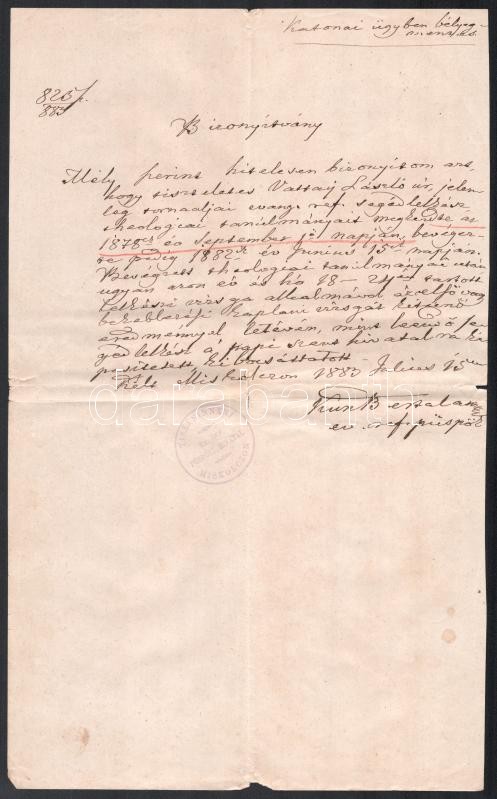 Katonai ügyben bélyeg-
mentes.
825/.
883
Bizonyítvány
Mély szerint hitelesen bizonyitom azt,
hogy tiszteletes Vattay László úr, jelen-
leg tornaljai evang. ref. segédlelkész
theologiai tanulmányait megkezdte az
1878ik év September 1ső napján, bevégez-
te pedig 1882ik év Junius 15ik napján.
Bevégzett theologiai tanulmányai után
ugyan azon év és hó 18 - 24én tartott
lelkészi vizsga alkalmával
káplani vizsgát kitünő
eredménnyel letévén, mint
segédlelkész a papi szent hivatalra ké-
pesitetett kibocsáttatott.
Kelt Miskolczon 1883 Julius 15én
Kun Bertalan
ev. ref. püspök
darabanth
MISKOLCZON